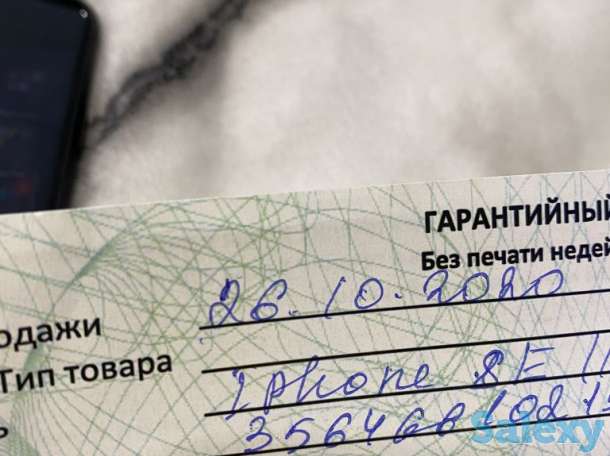 ГАРАНТИЙНЫЙ
Без печати недей
одажи 26.10.2020
Тип товара
Iphone SE
Salexy